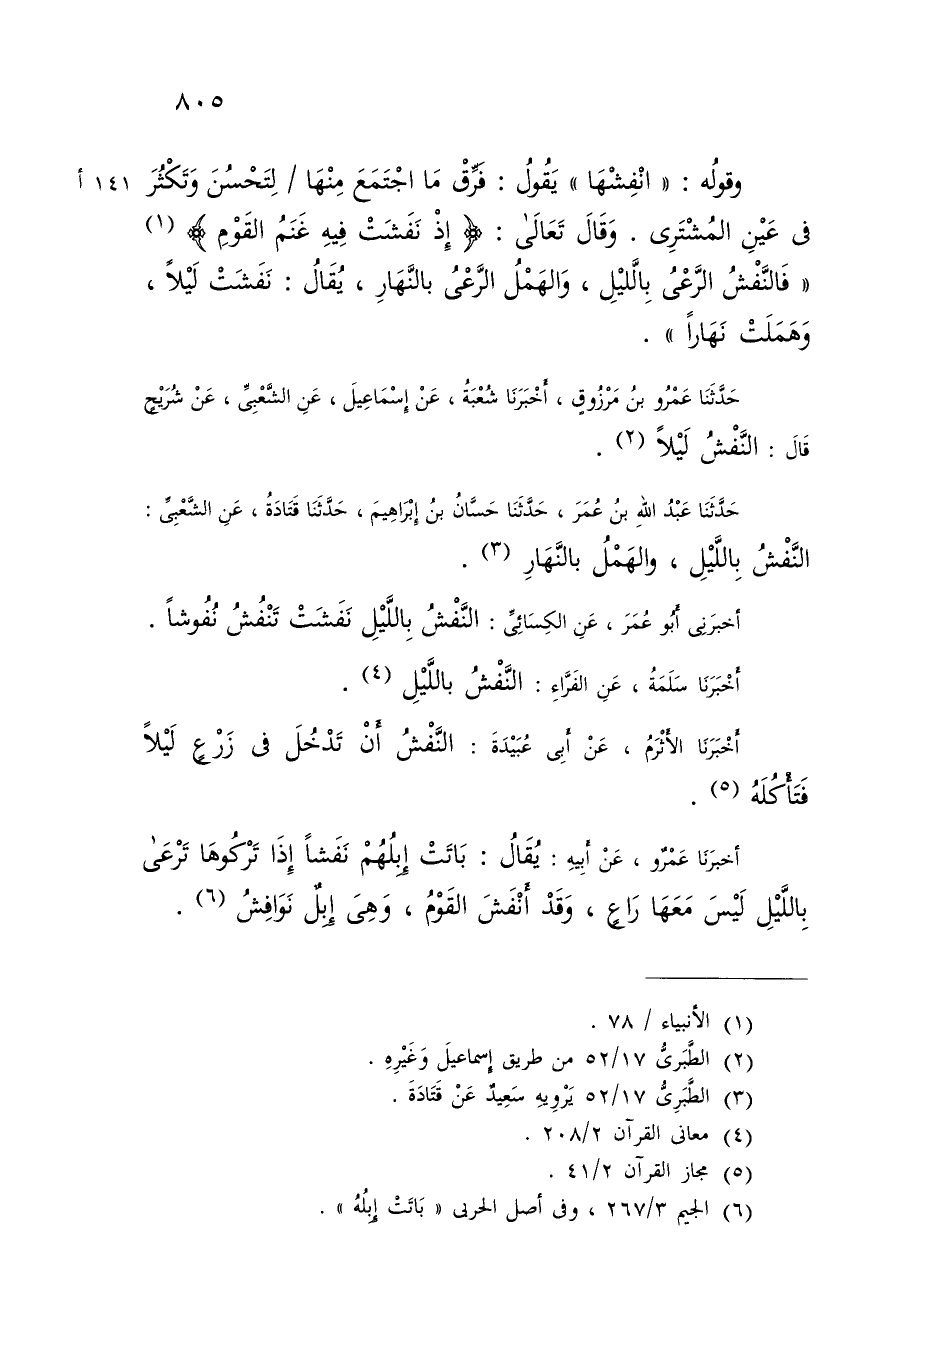 ٨٠٥
وقولُه : « انْفِشْهَا » يَقُولُ : فَرِّقْ مَا اجْتَمَعَ مِنْهَا / لِتَحْسُنَ وَتَكْثُرَ ١٤١ أ
فى عَيْنِ المُشْتَرِى . وَقَالَ تَعَالَىٰ : ﴿ إِذْ نَفَشَتْ فِيهِ غَنَمُ القَوْمِ ﴾ (١)
« فَالنَّفْشُ الرَّعْىُ بِالَّليْلِ ، وَالهَمْلُ الرَّعْىُ بالنَّهَارِ ، يُقَالُ : نَفَشَتْ لَيْلاً ،
وَهَمَلَتْ نَهَاراً » .
حَدَّثَنَا عَمْرُو بنُ مَرْزُوقٍ ، أَخْبَرَنَا شُعْبَةُ ، عَنْ إِسْمَاعِيلَ ، عَنِ الشَّعْبِىِّ ، عَنْ شُرَيْحٍ
قَالَ : النَّفْشُ لَيْلاً (٢) .
حَدَّثَنَا عَبْدُ اللهِ بنُ عُمَرَ ، حَدَّثَنَا حَسَّانُ بنُ إِبْرَاهِيمَ ، حَدَّثَنَا قَتَادَةُ ، عَنِ الشَّعْبِىِّ :
النَّفْشُ بِاللَّيْلِ ، والهَمْلُ بالنَّهَارِ (٣) .
أخبرَنِى أَبُو عُمَرَ ، عَنِ الكِسَائِىِّ : النَّفْشُ بِاللَّيْلِ نَفَشَتْ تَنْفُشُ نُفُوشاً .
أَخْبَرَنَا سَلَمَةُ ، عَنِ الفَرَّاءِ : النَّفْشُ باللَّيْلِ (٤) .
أَخْبَرَنَا الأَثْرَمُ ، عَنْ أَبِى عُبَيْدَةَ : النَّفْشُ أَنْ تَدْخُلَ فى زَرْعٍ لَيْلاً
فَتَأْكُلَهُ (٥) .
أخبرَنَا عَمْرٌو ، عَنْ أَبِيهِ : يُقَالُ : بَاتَتْ إِبِلُهُمْ نَفَشاً إِذَا تَرْكُوهَا تَرْعَىٰ
بِاللَّيْلِ لَيْسَ مَعَهَا رَاعٍ ، وَقَدْ أَنْفَشَ القَوْمُ ، وَهِىَ إِبِلٌ نَوَافِشُ (٦) .
(١) الأنبياء / ٧٨ .
(٢) الطَّبَرِىُّ ٥٢/١٧ من طريق إِسماعيلَ وَغَيْرِهِ .
(٣) الطَّبَرِىُّ ٥٢/١٧ يَرْوِيهِ سَعِيدٌ عَنْ قَتَادَةَ .
(٤) معانى القرآن ٢٠٨/٢ .
(٥) مجاز القرآن ٤١/٢ .
(٦) الجيم ٢٦٧/٣ ، وفى أصل الحربى « بَاتَتْ إِبِلُهُ » .